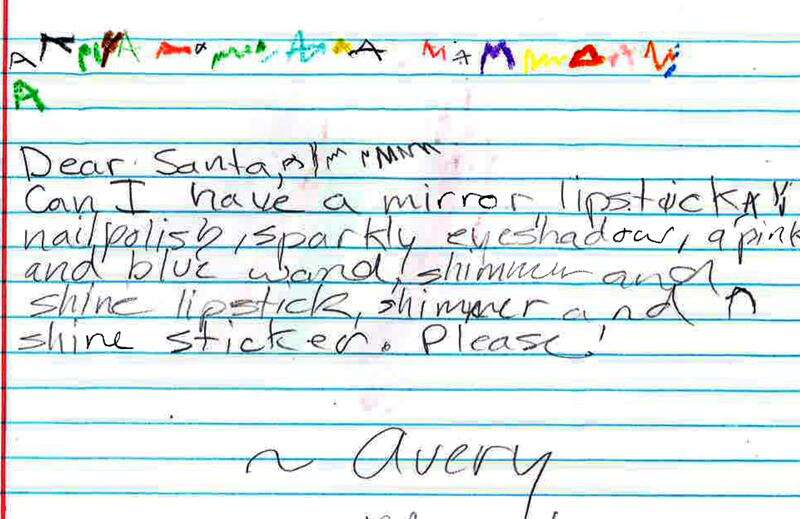 Dear Santa,
Can I have a mirror, lipstick
nailpolish, sparkly eyeshadow, a pink
and blue wand, shimmer and
shine lipstick, shimmer and
shine sticker. Please!
~ Avery